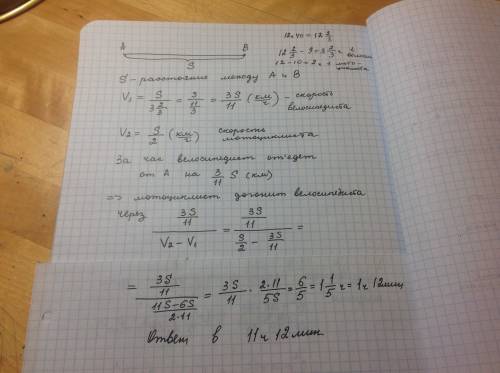 12ч 40 = 12 2/3
12 2/3 - 9 = 3 2/3 ч
12 - 10 = 2ч
A B
S
S - расстояние между A и B
V₁ = S / 3 2/3 = S / 11/3 = 3S/11 (км/ч) - скорость велосипедиста
V₂ = S/2 (км/ч) скорость мотоциклиста
За час велосипедист отъедет
от A на 3/11 S (км)
=> мотоциклист догонит велосипедиста
через 3S/11 / (V₂ - V₁) = 3S/11 / (S/2 - 3S/11) =
= 3S/11 / ((11S-6S)/(2·11)) = 3S/11 · 2·11/5S = 6/5 = 1 1/5 ч = 1ч 12мин
Ответ в 11ч 12мин